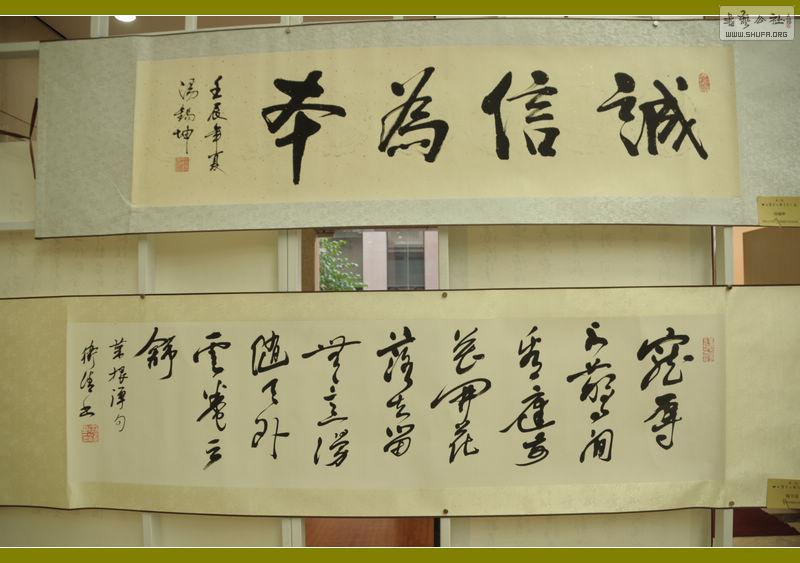 書藝公社
WWW.SHUFA.ORG
誠信為本
壬辰年夏
湯錫坤
寵辱
不驚閒
看庭前
花開花
落去留
無意漫
隨天外
雲卷云
舒
菜根譚句